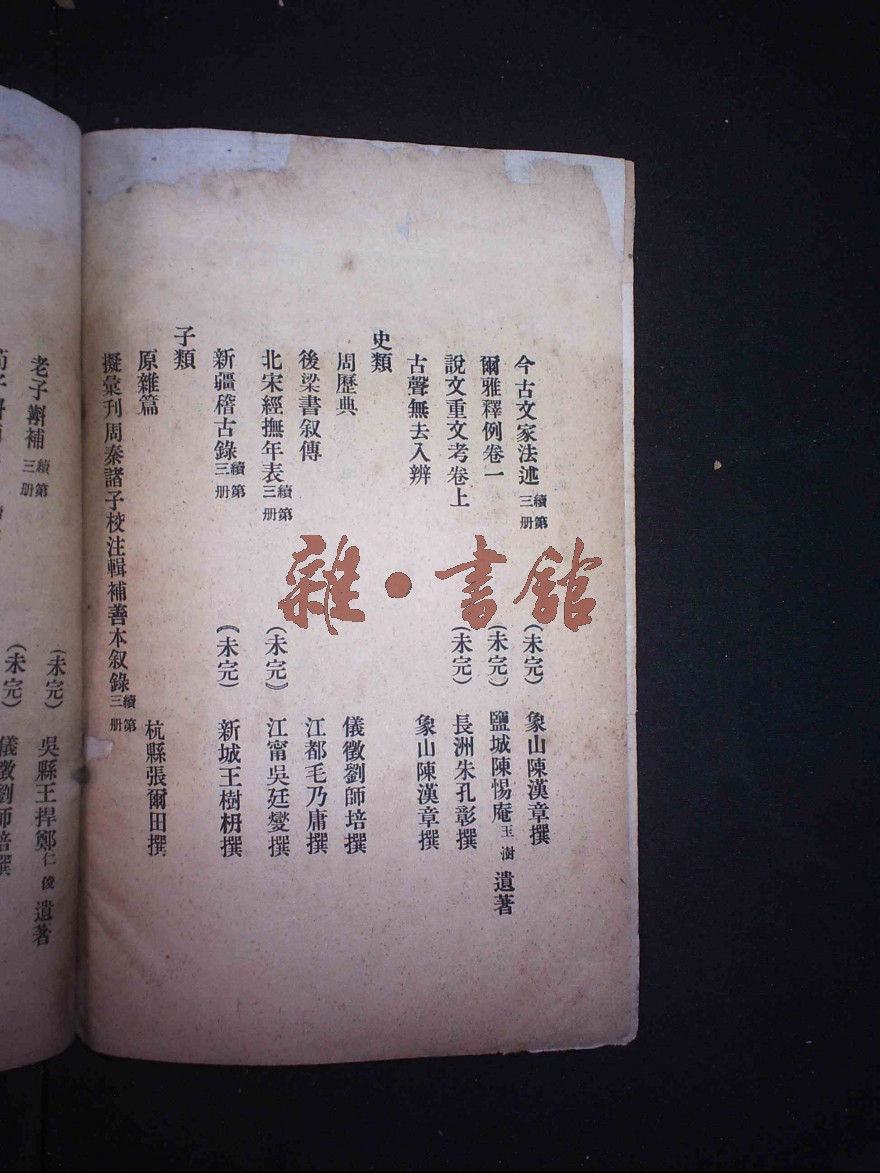 今古文家法述 續第三册 (未完) 象山陳漢章撰
爾雅釋例卷一 (未完) 鹽城陳惕庵玉澍遺著
說文重文考卷上 (未完) 長洲朱孔彰撰
古聲無去入辨 象山陳漢章撰
史類
周歷典 儀徵劉師培撰
後梁書叙傳 江都毛乃庸撰
北宋經撫年表 續第三册 (未完) 江甯吳廷燮撰
新疆稽古錄 續第三册 (未完) 新城王樹枏撰
子類
原雜篇 杭縣張爾田撰
擬彙刊周秦諸子校注輯補善本叙錄 續第三册
老子斠補 續第三册 (未完) 吳縣王捍鄭仁俊遺著
荀子斠補 (未完) 儀徵劉師培撰
雜·書館